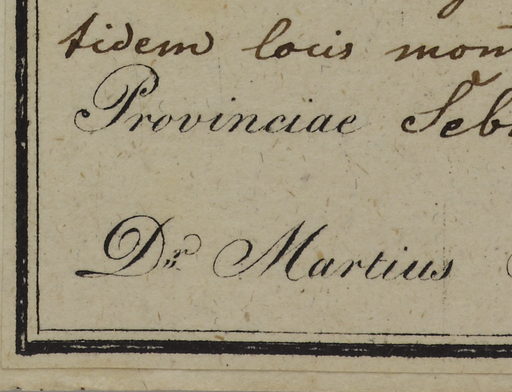 tidem locis mon
Provinciae Seb
Dr Martius